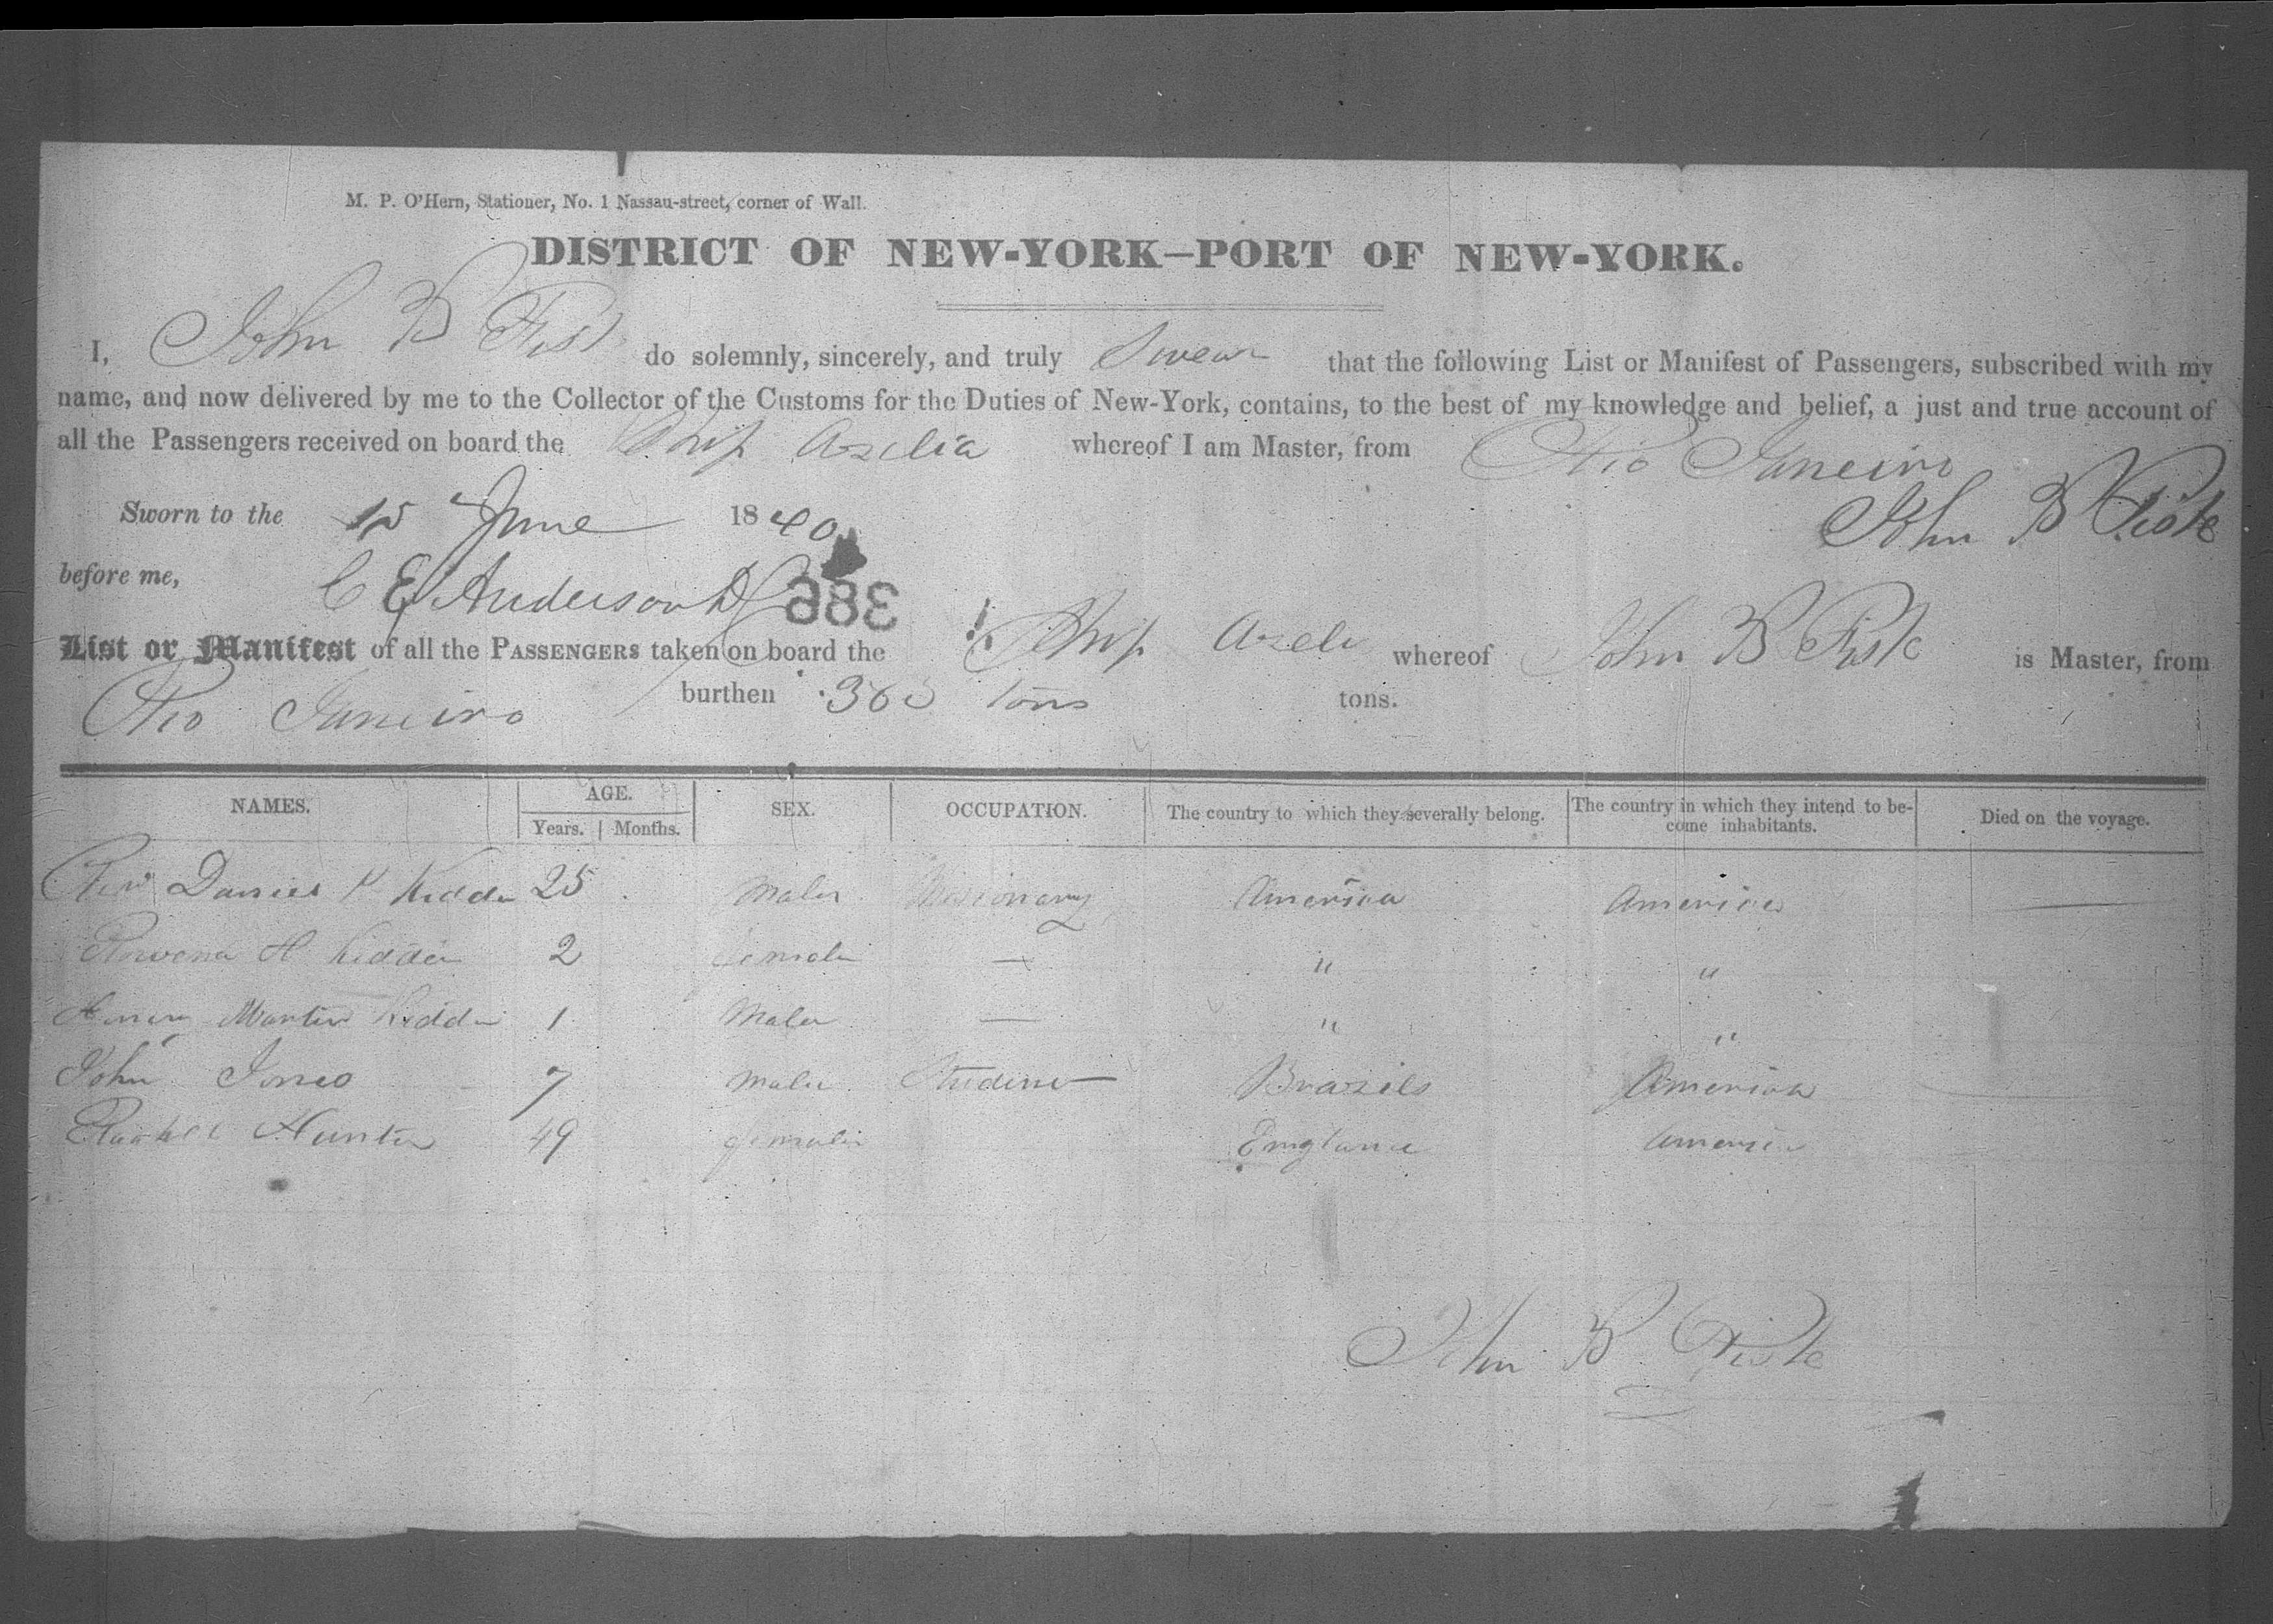 M. P. O'Hern, Stationer, No. 1 Nassau-street, corner of Wall.
DISTRICT OF NEW-YORK—PORT OF NEW-YORK.
I, John B Fisk do solemnly, sincerely, and truly Swear that the following List or Manifest of Passengers, subscribed with my
name, and now delivered by me to the Collector of the Customs for the Duties of New-York, contains, to the best of my knowledge and belief, a just and true account of
all the Passengers received on board the Ship Azelia whereof I am Master, from Rio Janeiro
John B Fisk
Sworn to the 15 June 1840
before me, C E Anderson DC
386
List or Manifest of all the PASSENGERS taken on board the Ship Azelia whereof John B Fisk is Master, from
Rio Janeiro burthen 363 tons tons.
NAMES. AGE. SEX. OCCUPATION. The country to which they severally belong. The country in which they intend to be- Died on the voyage.
Years. Months. come inhabitants.
Rev Daniel P Kidder 25 Male Missionary America America —
Rowena H Kidder 2 female — " "
Henry Martin Kidder 1 Male — " "
John Jones 7 male Student Brazils America
Rachel Hunter 49 female England America
John B Fisk